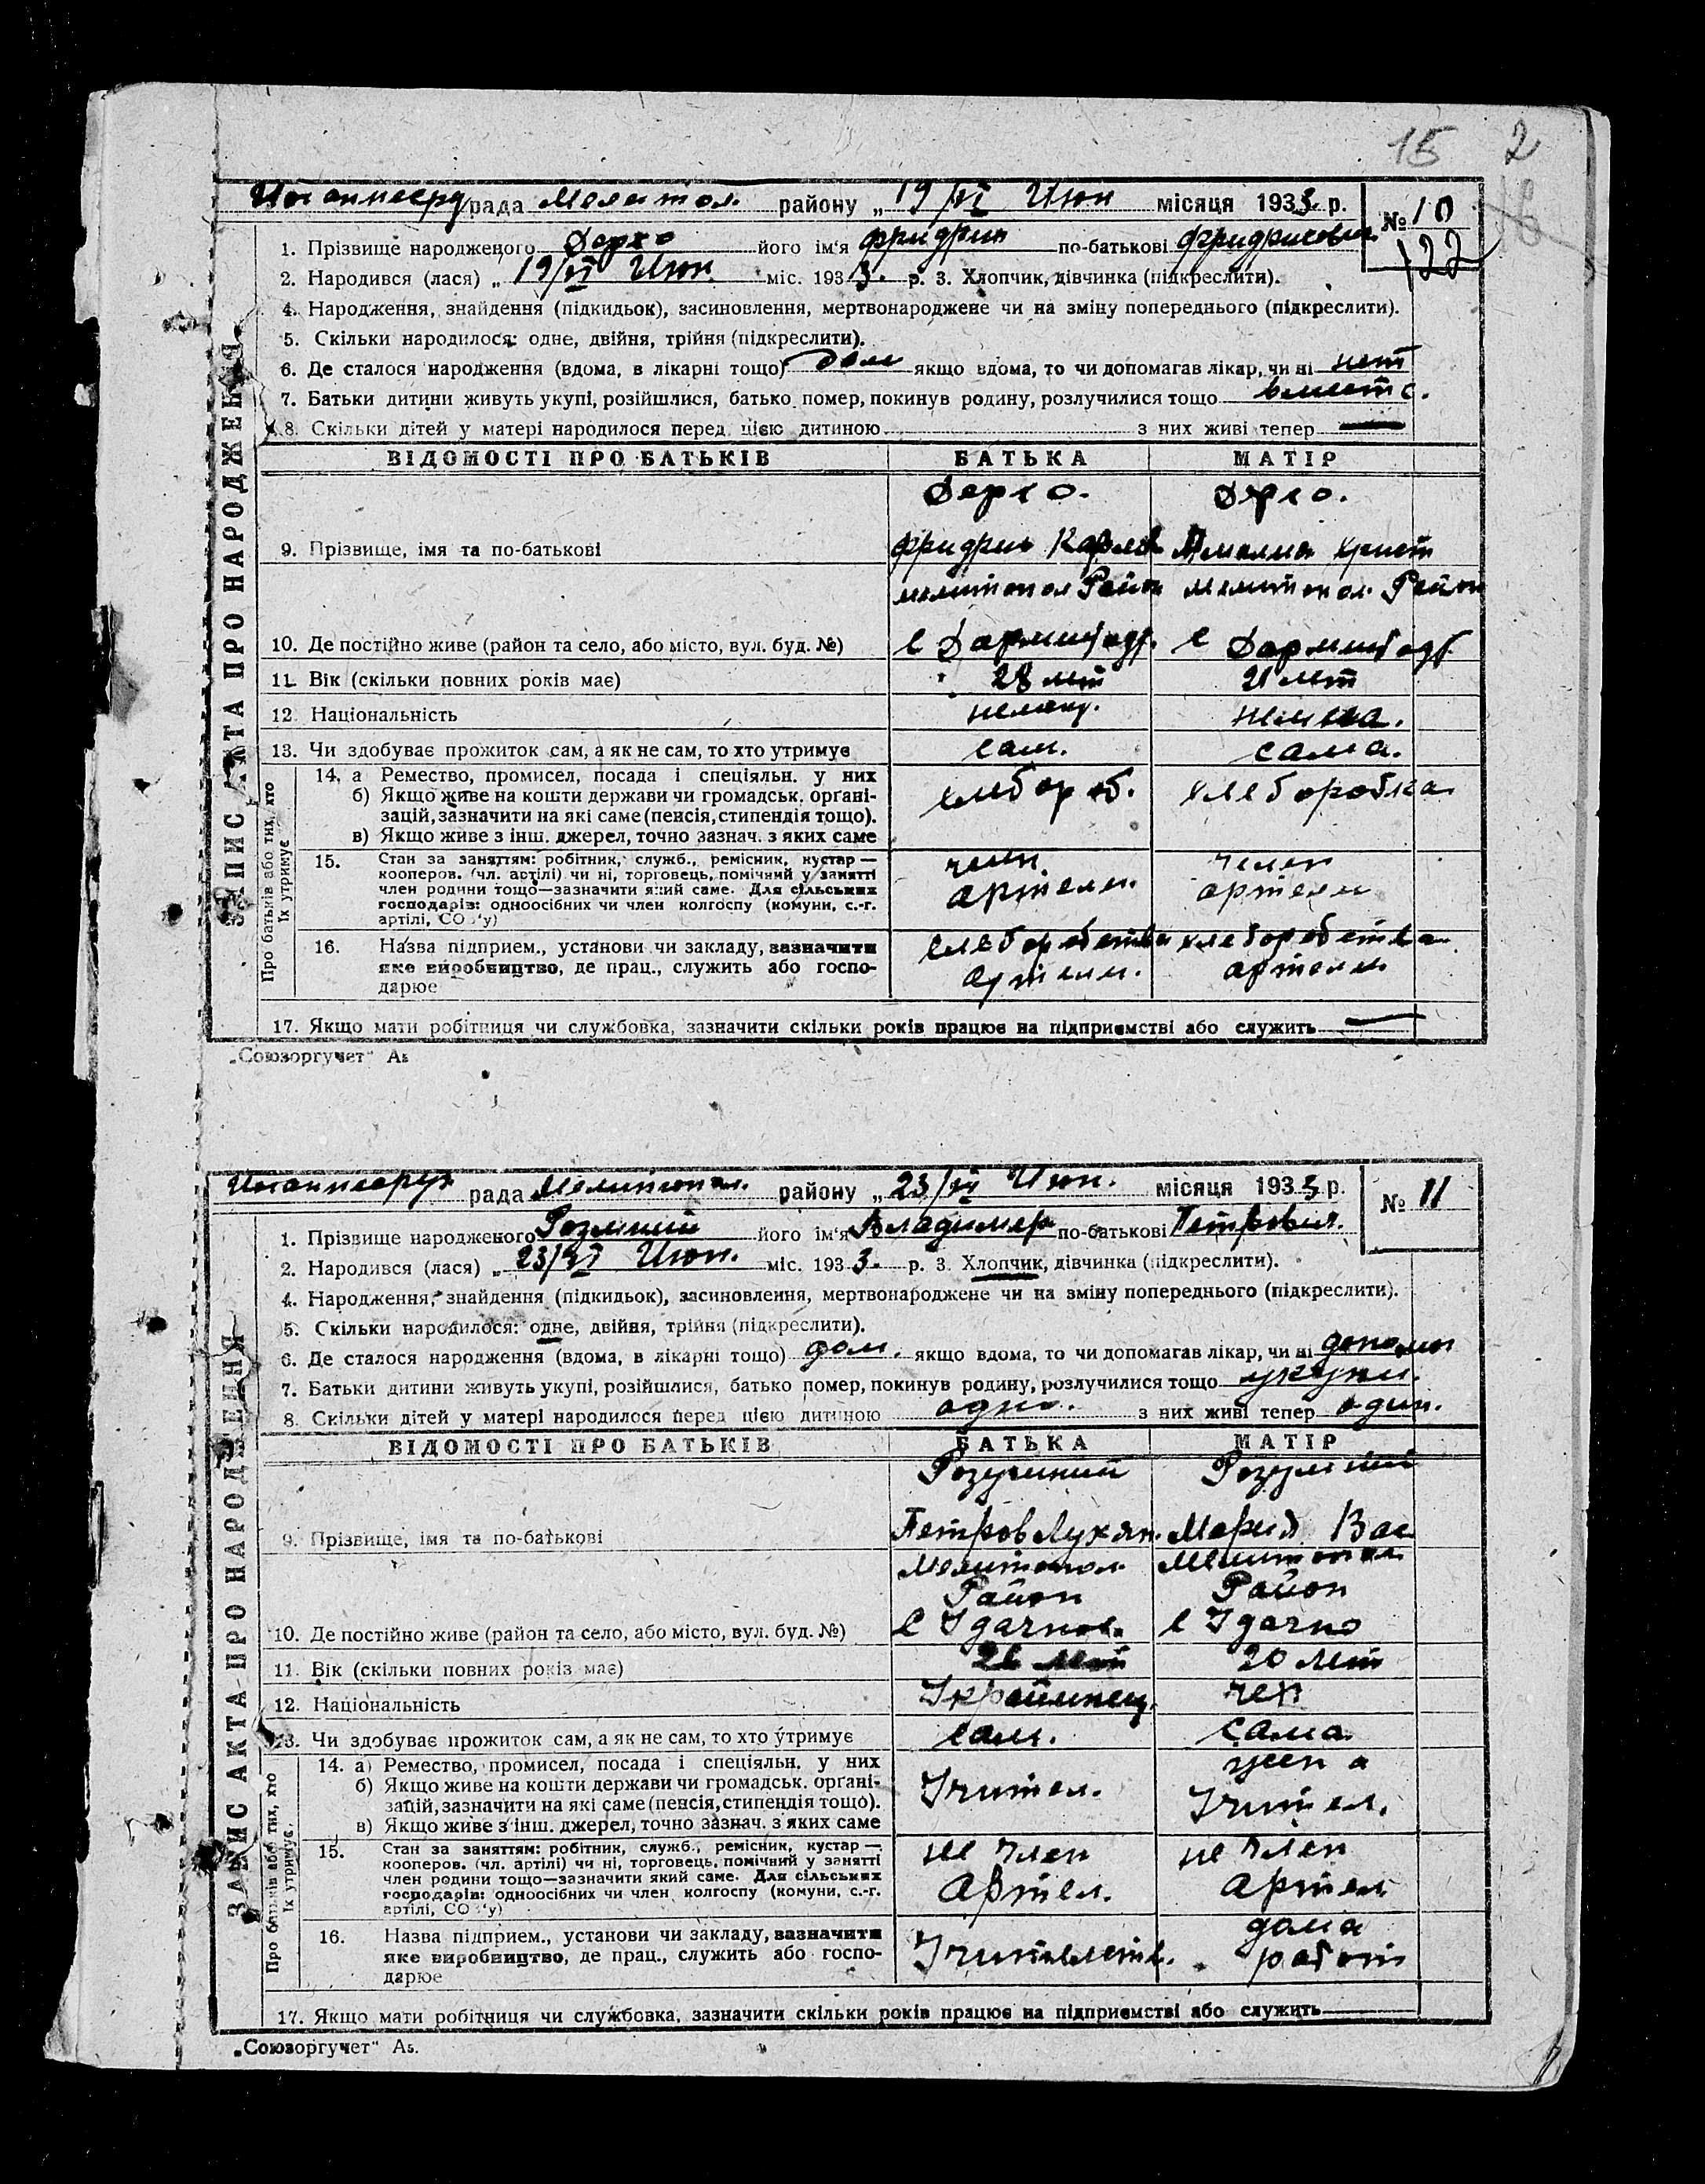 15 2
16
рада Мелитоп. району „ 19/VI Июн місяця 1933 р. № 10
122
1. Прізвище народженого Дерхо його ім'я Фридрих по-батькові Фридрихович
2. Народився (лася) „ 19/VI Июн. міс. 1933. р. 3. Хлопчик, дівчинка (підкреслити).
4. Народження, знайдення (підкидьок), засиновлення, мертвонароджене чи на зміну попереднього (підкреслити).
5. Скільки народилося: одне, двійня, трійня (підкреслити).
6. Де сталося народження (вдома, в лікарні тощо) дом якщо вдома, то чи допомагав лікар, чи ні нет
7. Батьки дитини живуть укупі, розійшлися, батько помер, покинув родину, розлучилися тощо вместе.
8. Скільки дітей у матері народилося перед цією дитиною з них живі тепер —
ВІДОМОСТІ ПРО БАТЬКІВ БАТЬКА МАТІР
Дерхо. Дерхо.
9. Прізвище, імя та по-батькові Фридрих Карлов Амалия Христ
мелитопол Район мелитопол. Район
10. Де постійно живе (район та село, або місто, вул. буд. №) с Дармштадт. с Дармштадт
11. Вік (скільки повних років має) 28 лет 21 лет
12. Національність немец. немка.
13. Чи здобуває прожиток сам, а як не сам, то хто утримує сам. сама.
14. а Ремество, промисел, посада і спеціяльн. у них
б) Якщо живе на кошти держави чи громадськ. органі- хлебороб. хлеборобка
зацій, зазначити на які саме (пенсія, стипендія тощо).
в) Якщо живе з інш. джерел, точно зазнач. з яких саме
15. Стан за заняттям: робітник, служб., ремісник, кустар — член член
кооперов. (чл. артілі) чи ні, торговець, помічний у занятті
член родини тощо—зазначити який саме. Для сільських артели. артели
господарів: одноосібних чи член колгоспу (комуни, с.-г.
артілі, СО 'у)
16. Назва підприєм., установи чи закладу, зазначити хлеборобства хлеборобства
яке виробництво, де прац., служить або госпо- артели. артели
дарює
17. Якщо мати робітниця чи службовка, зазначити скільки років працює на підприємстві або служить —
ЗАПИС АКТА ПРО НАРОДЖЕННЯ
Про батьків або тих, хто
їх утримує
„Союзоргучет" А5
рада Мелитопол. району „ 23/VI Июн. місяця 1933 р. № 11
1. Прізвище народженого його ім'я Владимер по-батькові Петрович.
2. Народився (лася) „ 23/VI Июн. міс. 1933. р. 3. Хлопчик, дівчинка (підкреслити).
4. Народження, знайдення (підкидьок), засиновлення, мертвонароджене чи на зміну попереднього (підкреслити).
5. Скільки народилося: одне, двійня, трійня (підкреслити).
6. Де сталося народження (вдома, в лікарні тощо) дом. якщо вдома, то чи допомагав лікар, чи ні
7. Батьки дитини живуть укупі, розійшлися, батько помер, покинув родину, розлучилися тощо укупи.
8. Скільки дітей у матері народилося перед цією дитиною одно. з них живі тепер один.
ВІДОМОСТІ ПРО БАТЬКІВ БАТЬКА МАТІР
Розумний Розумний
9. Прізвище, імя та по-батькові Петров Лукян. Мария Вас
Мелитопол. Мелитопол
Район Район
10. Де постійно живе (район та село, або місто, вул. буд. №) с Удачное с Удачно
11. Вік (скільки повних років має) 26 лет 20 лет
12. Національність Украйинец.
13. Чи здобуває прожиток сам, а як не сам, то хто утримує сам. сама
14. а) Ремество, промисел, посада і спеціяльн. у них жена
б) Якщо живе на кошти держави чи громадськ. органі- Учител. Учител.
зацій, зазначити на які саме (пенсія, стипендія тощо).
в) Якщо живе з інш. джерел, точно зазнач. з яких саме
15. Стан за заняттям: робітник, служб., ремісник, кустар — не член не член
кооперов. (чл. артілі) чи ні, торговець, помічний у занятті
член родини тощо—зазначити який саме. Для сільських Артел. Артел
господарів: одноосібних чи член колгоспу (комуни, с.-г.
артілі, СО 'у)
16. Назва підприєм., установи чи закладу, зазначити дома
яке виробництво, де прац., служить або госпо- Учителств. работ
дарює
17. Якщо мати робітниця чи службовка, зазначити скільки років працює на підприємстві або служить
ЗАПИС АКТА ПРО НАРОДЖЕННЯ
Про батьків або тих, хто
їх утримує.
„Союзоргучет" А5.